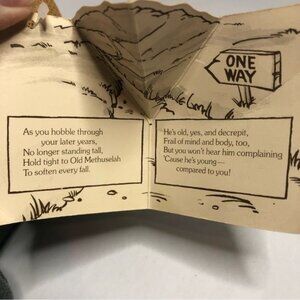 ONE
WAY
As you hobble through
your later years,
No longer standing tall,
Hold tight to Old Methuselah
To soften every fall.
He's old, yes, and decrepit,
Frail of mind and body, too,
But you won't hear him complaining
'Cause he's young—
compared to you!